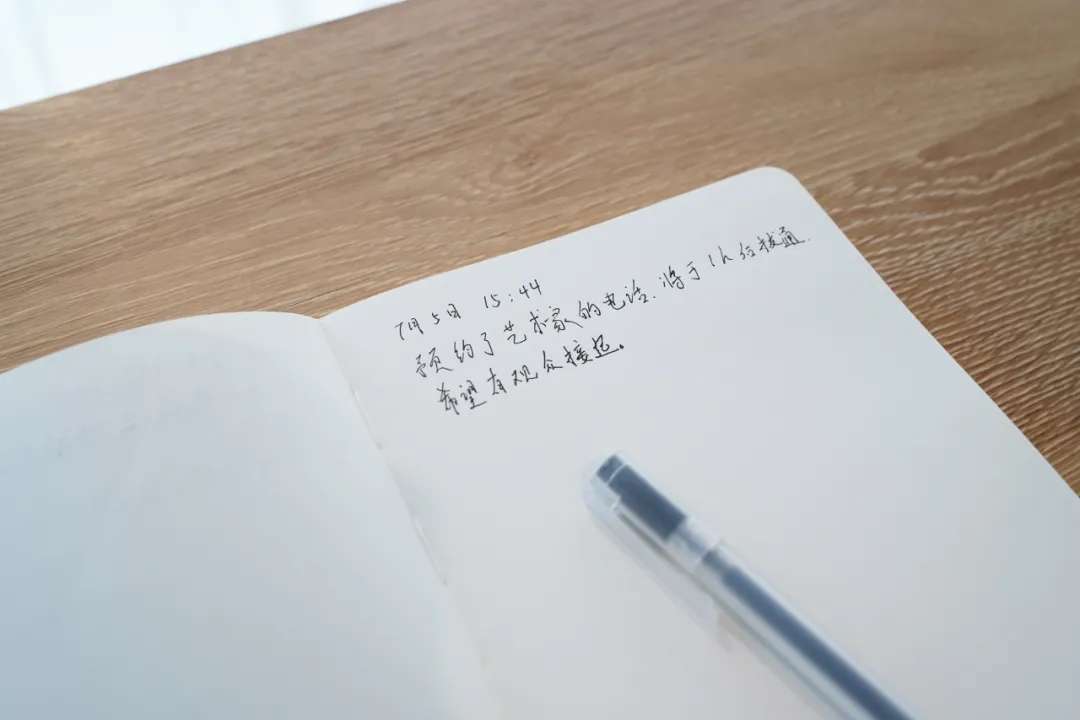 7月5日 15:44
预约了艺术家的电话.将于1h后拨通.
希望有观众接起。